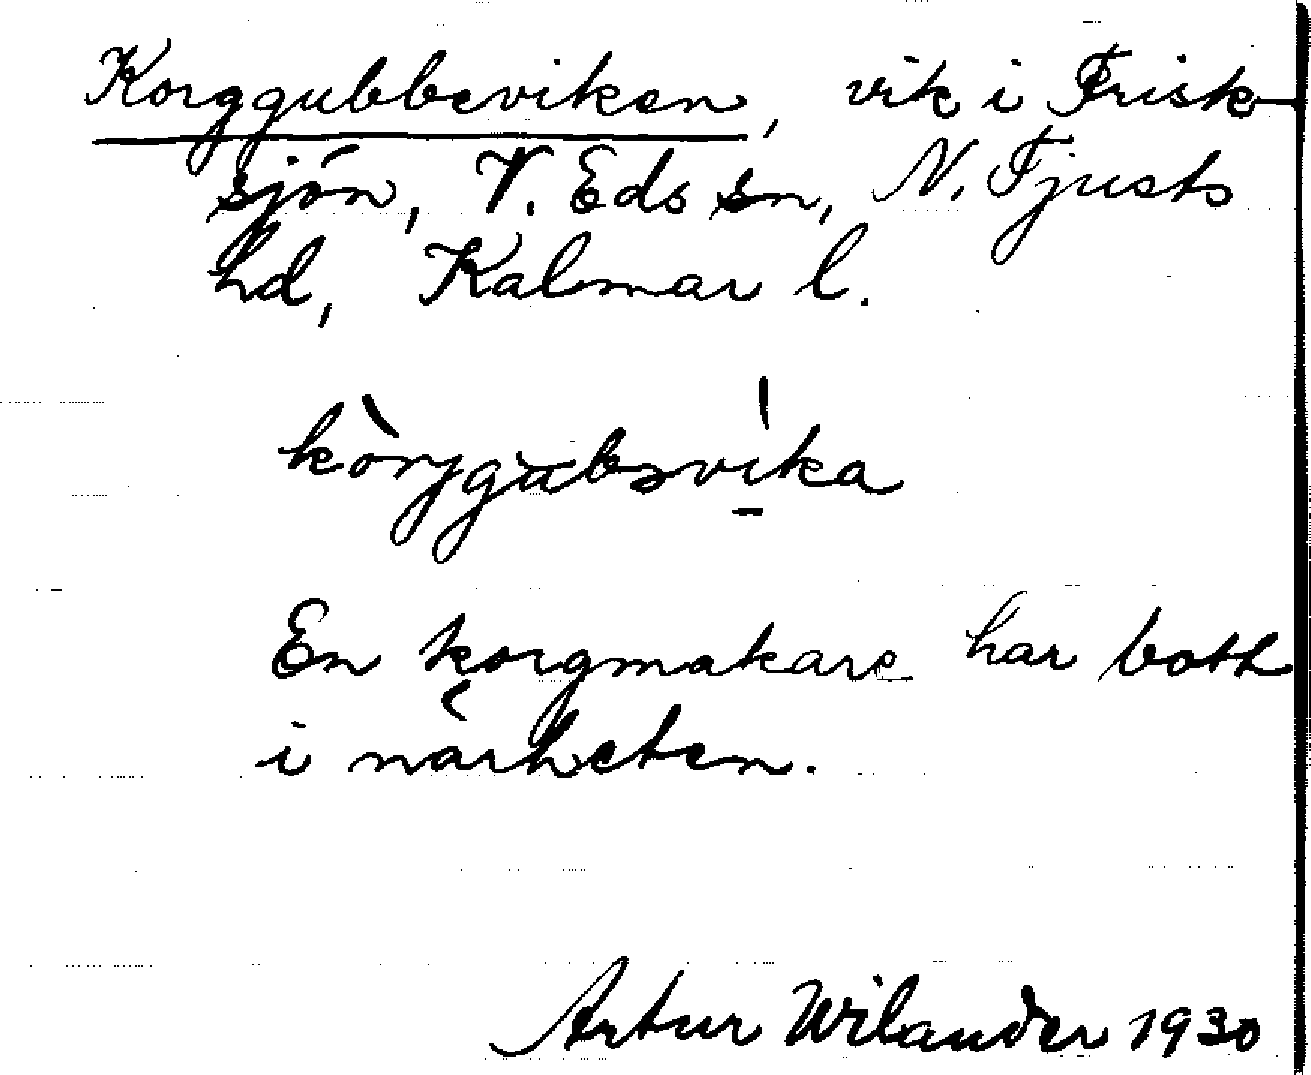 Korggubbeviken, vik i Frisk-
sjön, V. Eds sn, N. Tjusts
hd, Kalmar l.
En korgmakare har bott
i närheten.
Artur Wilander 1930